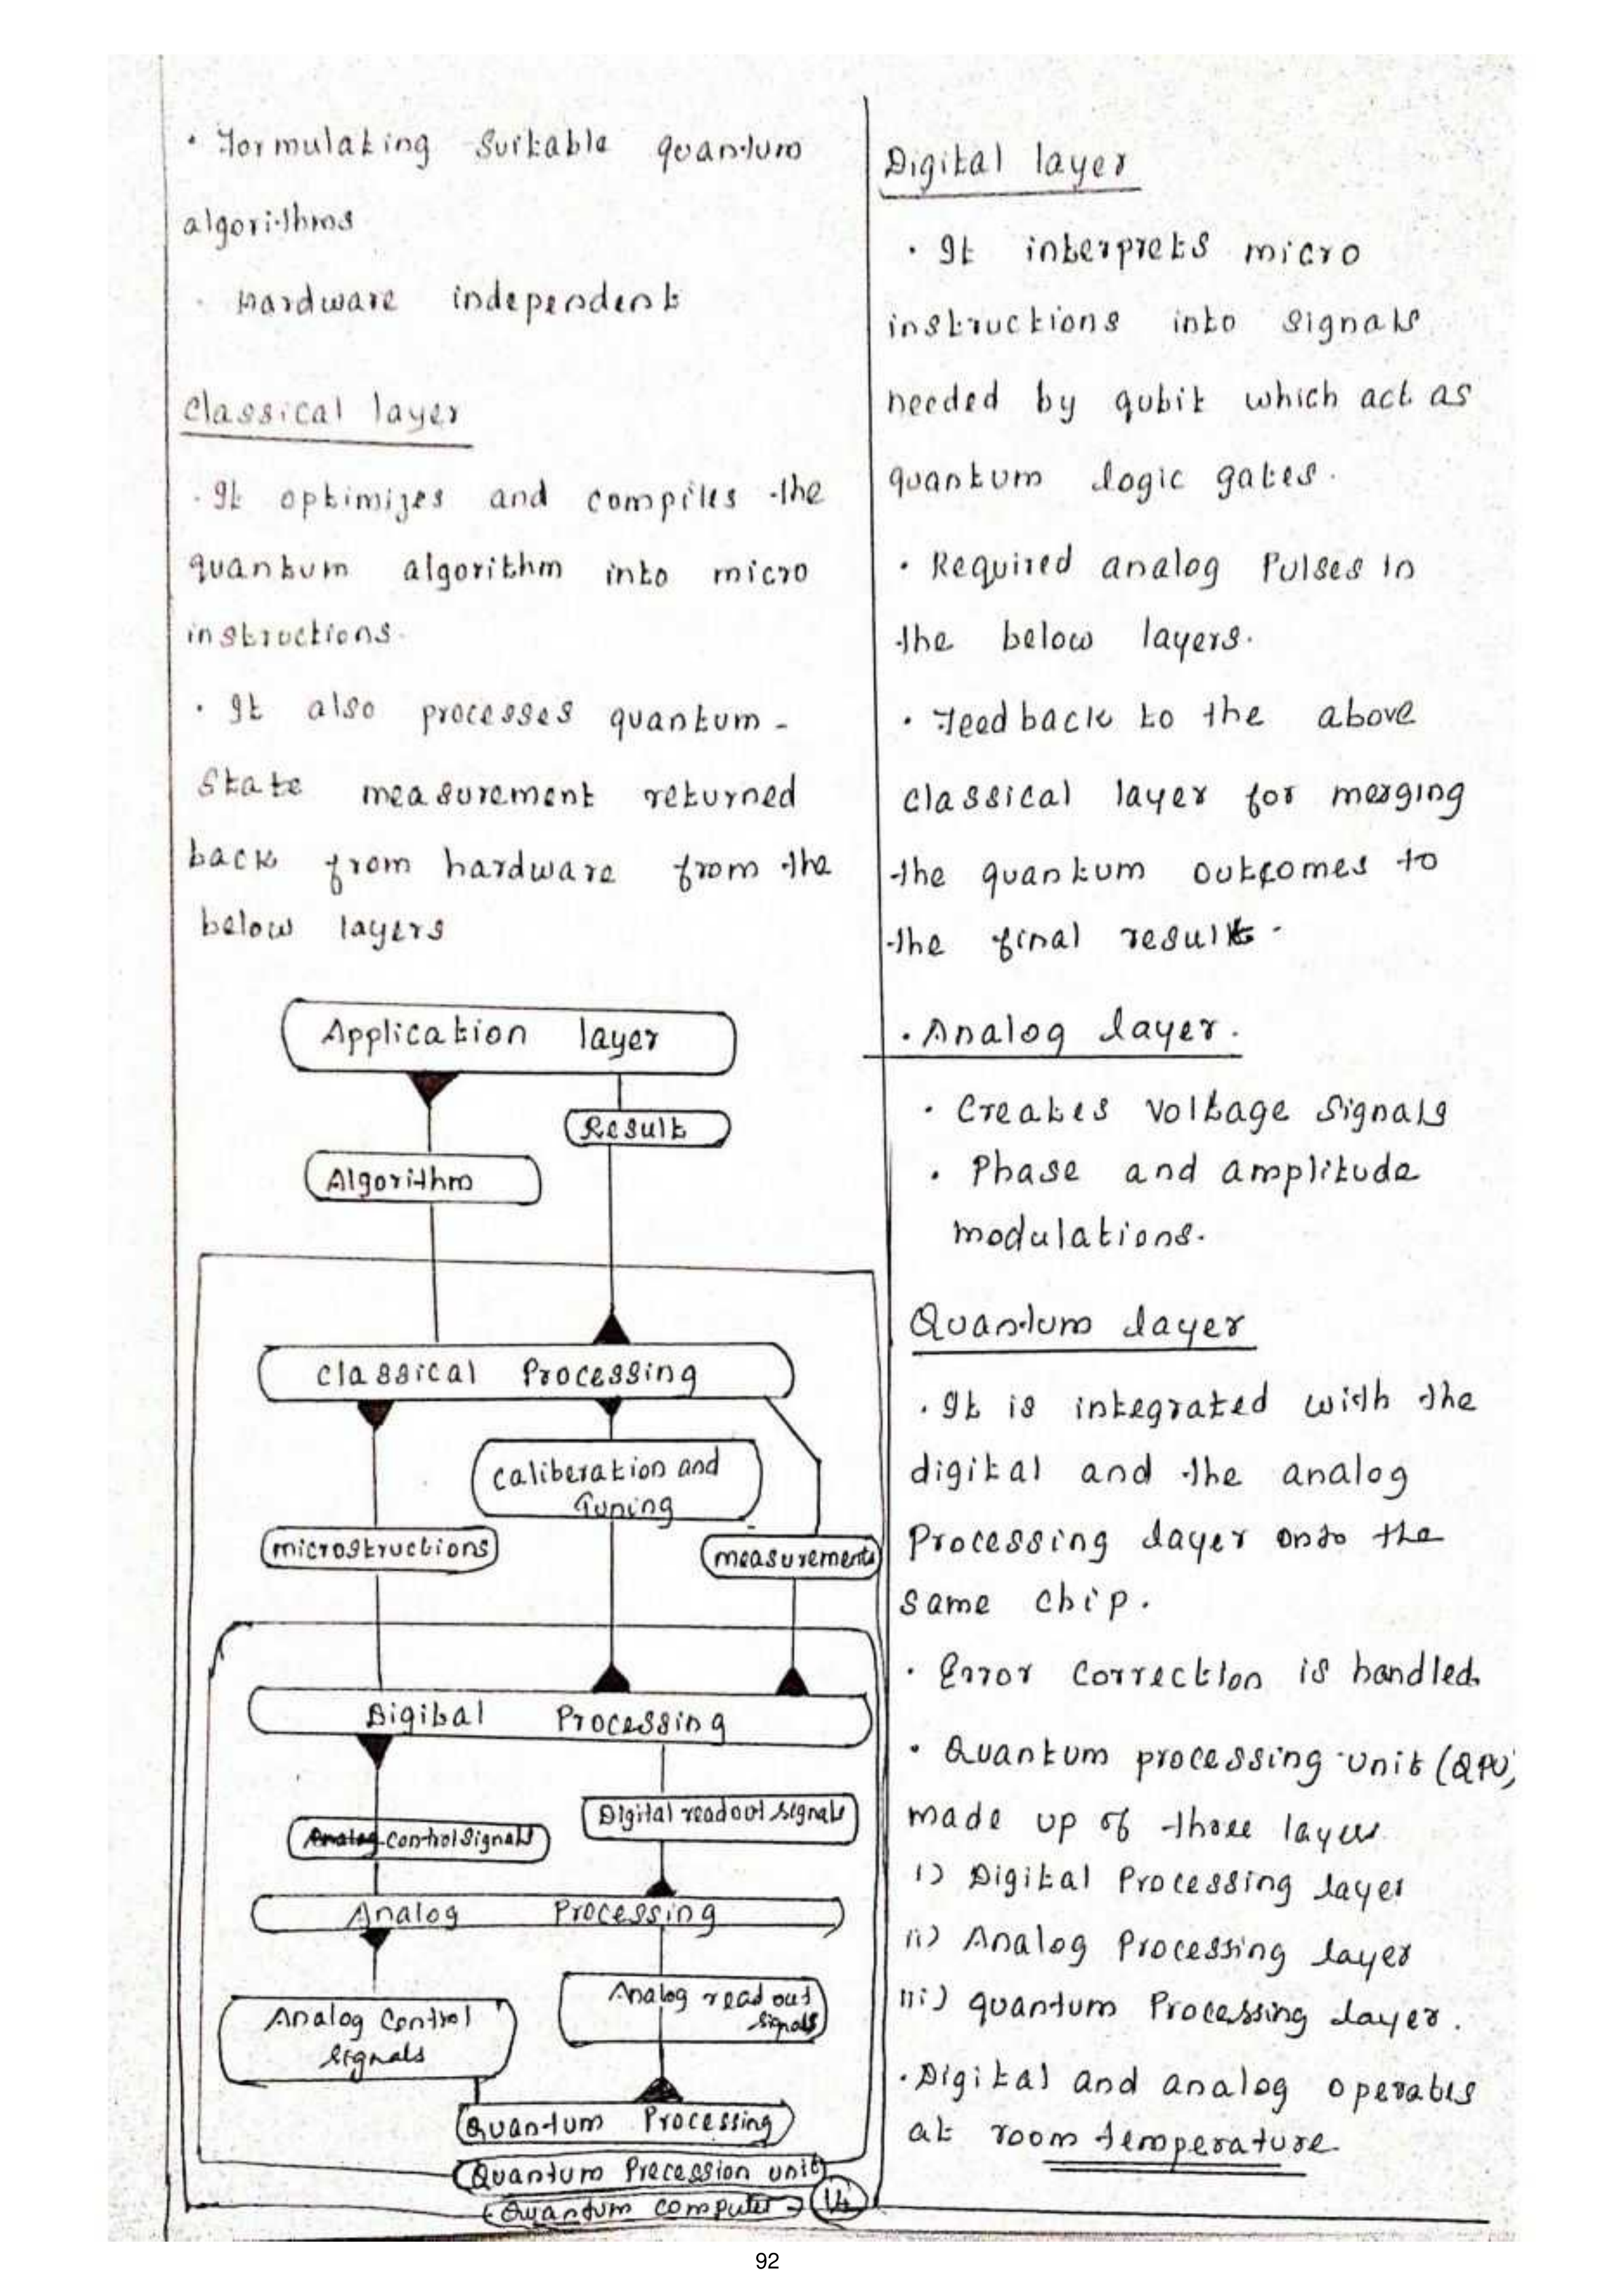 • Formulating suitable quantum
algorithms
• Hardware independent
Classical layer
• It optimizes and compiles the
quantum algorithm into micro
instructions.
• It also processes quantum -
State measurement returned
back from hardware from the
below layers
Application layer
Result
Algorithm
Classical Processing
Caliberation and
Tuning
microstructions
measurements
Digital Processing
Digital readout signals
Analog control signals
Analog Processing
Analog read out
signals
Analog Control
signals
Quantum Processing
Quantum Precession unit
Quantum computer
Digital layer
• It interprets micro
instructions into signals
needed by qubit which act as
quantum logic gates.
• Required analog Pulses in
the below layers.
• Feedback to the above
classical layer for merging
the quantum outcomes to
the final result.
• Analog layer.
• Creates voltage signals
• Phase and amplitude
modulations.
Quantum layer
• It is integrated with the
digital and the analog
Processing layer onto the
same chip.
• Error correction is handled.
• Quantum processing unit (QPU)
made up of three layers
i) Digital Processing layer
ii) Analog Processing layer
iii) quantum Processing layer.
• Digital and analog operates
at room temperature.
92